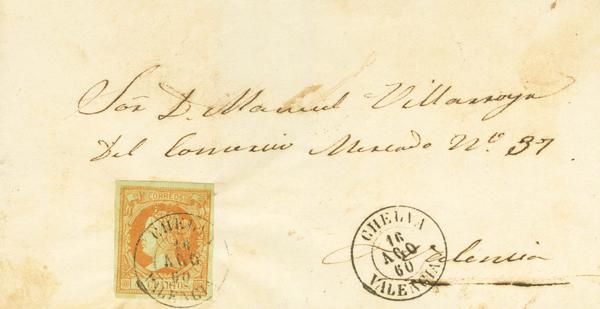 Sor. D. Manuel Villarroya
Del Comercio Mercado Nº 37
Valencia
CORREOS
CHELVA
16
AGO
60
VALENCIA
CHELVA
16
AGO
60
VALENCIA